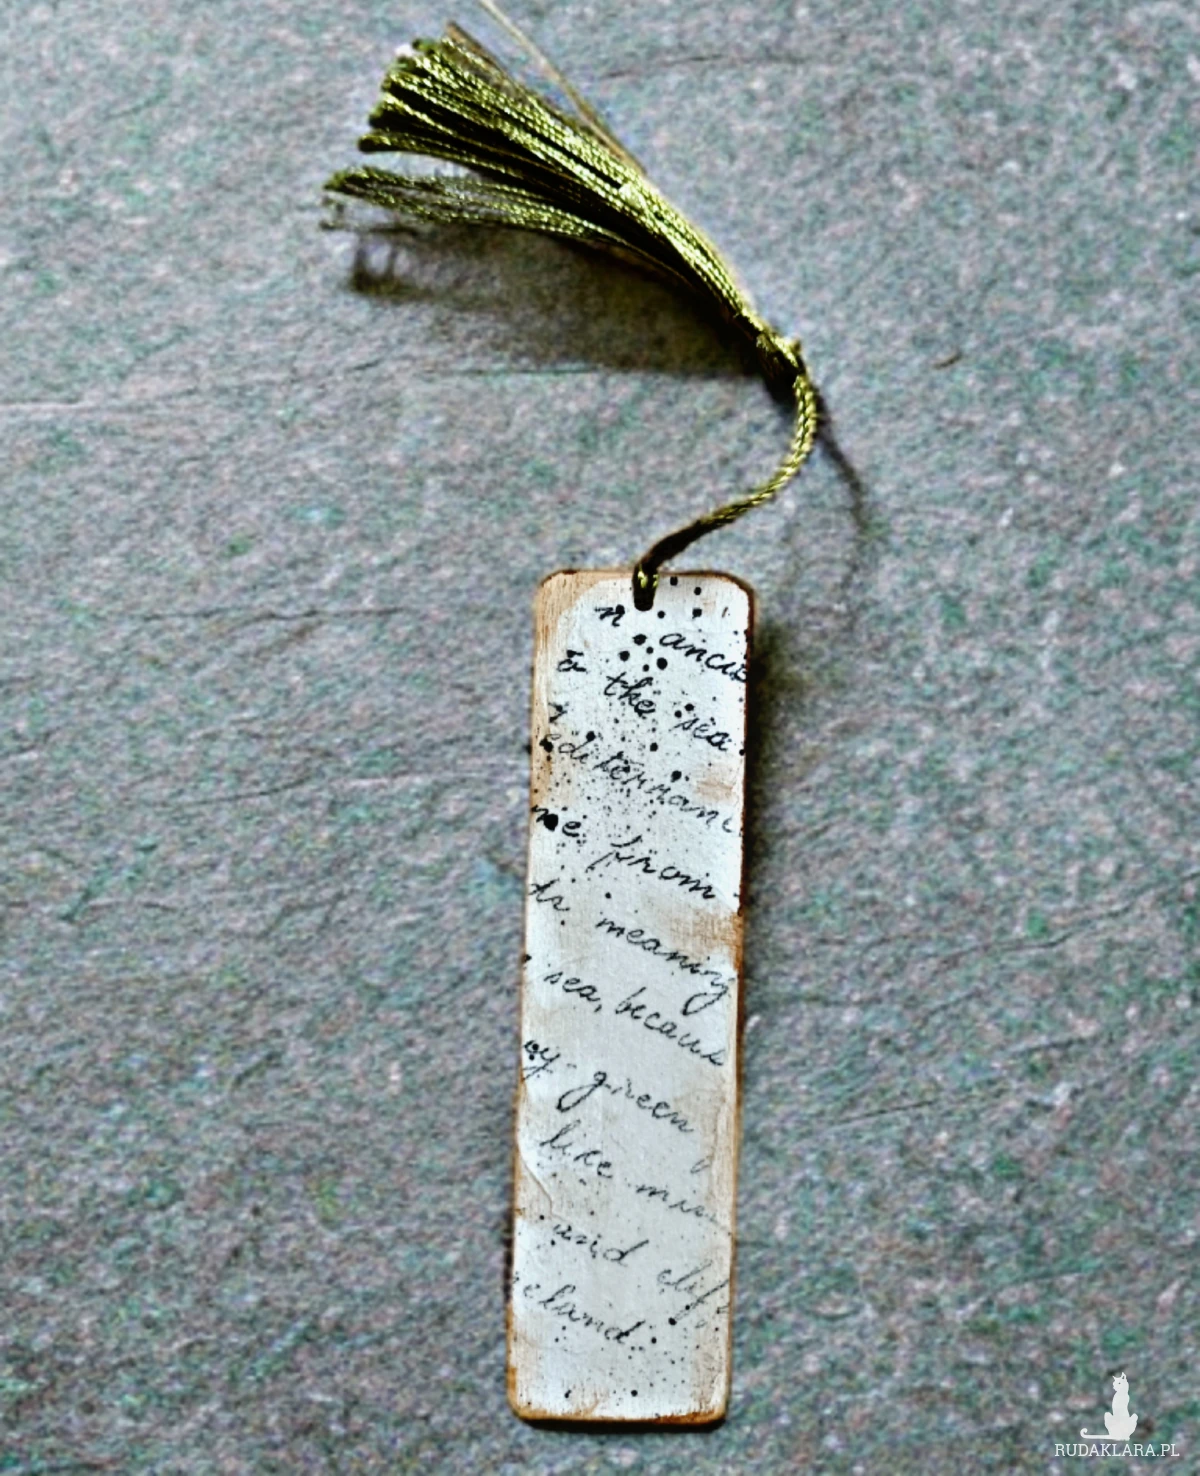 n ancie
the sea
editerrane
me from
ts meaning
sea, becaus
by green
like
and clif
eland.
RUDAKLARA.PL